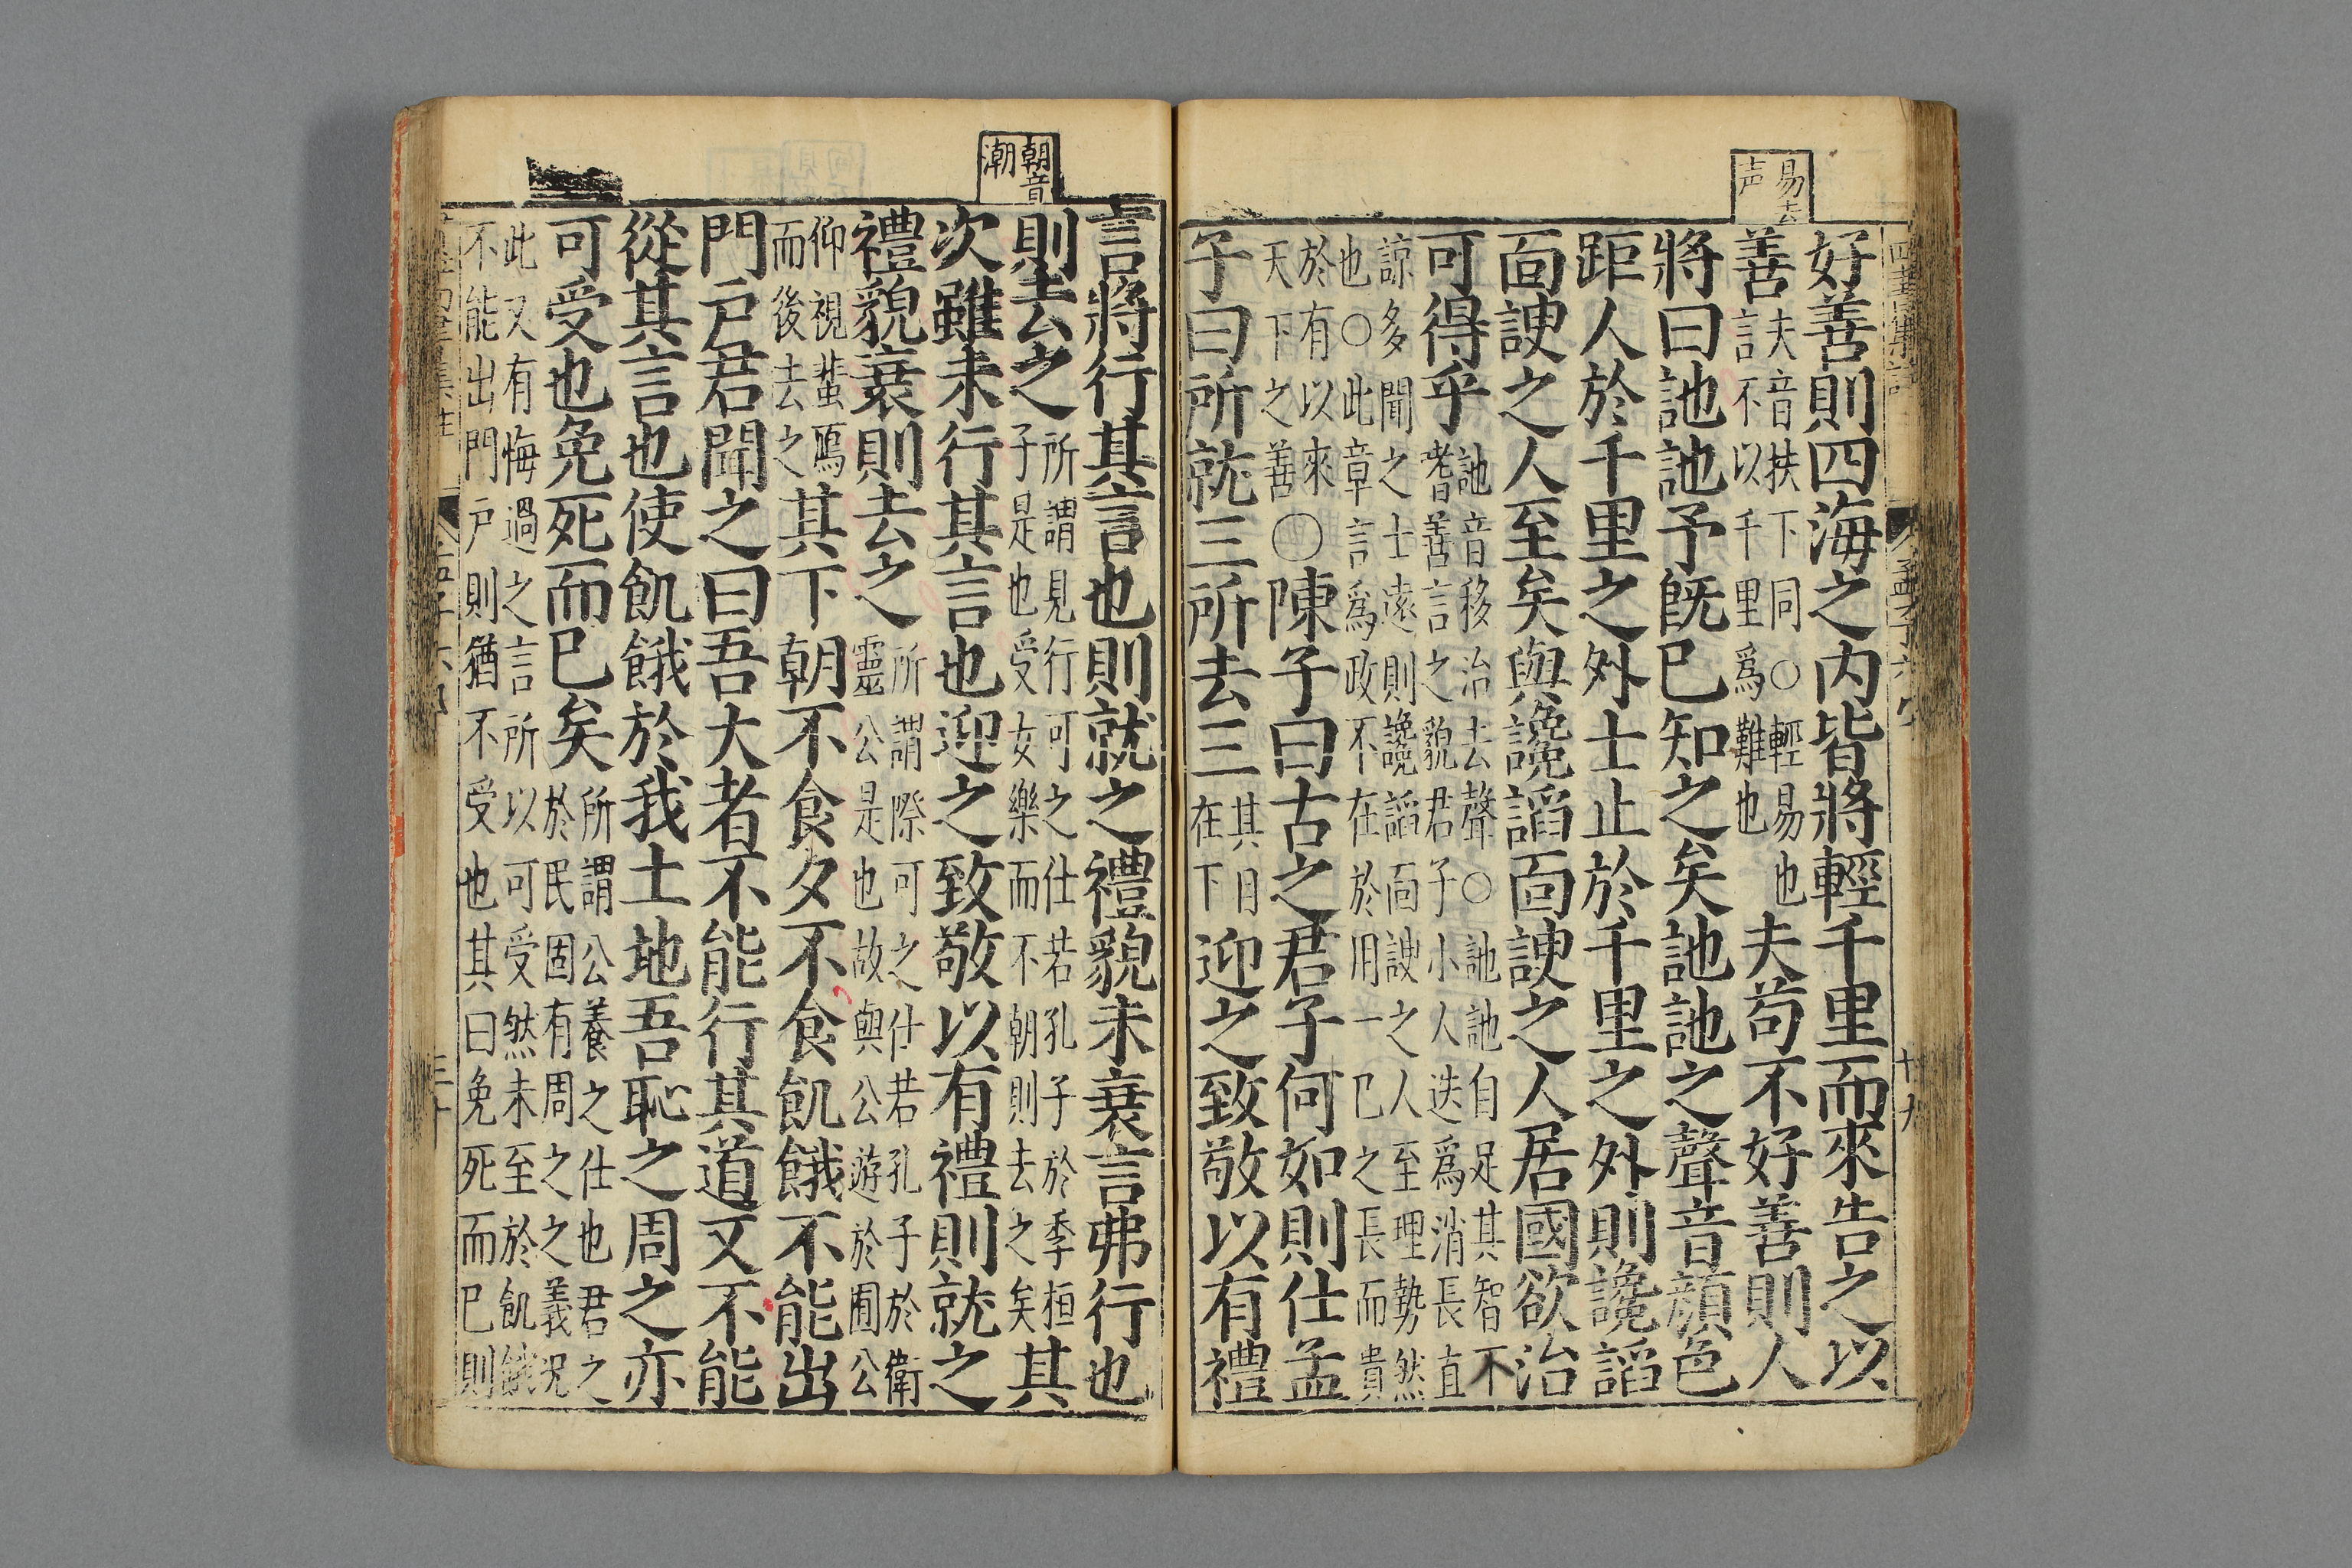 易去
声
好善則四海之内皆將輕千里而來告之以
善夫音扶下同○輕易也
言不以千里爲難也夫苟不好善則人
將曰訑訑予旣已知之矣訑訑之聲音顔色
距人於千里之外士止於千里之外則讒謟
面諛之人至矣與讒謟面諛之人居國欲治
可得乎訑音移治去聲○訑訑自足其智不
嗜善言之貌君子小人迭爲消長直
諒多聞之士遠則讒謟面諛之人至理勢然
也○此章言爲政不在於用一己之長而貴
於有以來
天下之善○陳子曰古之君子何如則仕孟
子曰所就三所去三其目
在下迎之致敬以有禮
朝音
潮
言將行其言也則就之禮貌未衰言弗行也
則去之所謂見行可之仕若孔子於季桓
子是也受女樂而不朝則去之矣其
次雖未行其言也迎之致敬以有禮則就之
禮貌衰則去之所謂際可之仕若孔子於衛
靈公是也故與公遊於囿公
仰視蜚鴈
而後去之其下朝不食夕不食飢餓不能出
門戸君聞之曰吾大者不能行其道又不能
從其言也使飢餓於我土地吾恥之周之亦
可受也免死而已矣所謂公養之仕也君之
於民固有周之之義況
此又有悔過之言所以可受然未至於飢餓
不能出門戸則猶不受也其曰免死而已則